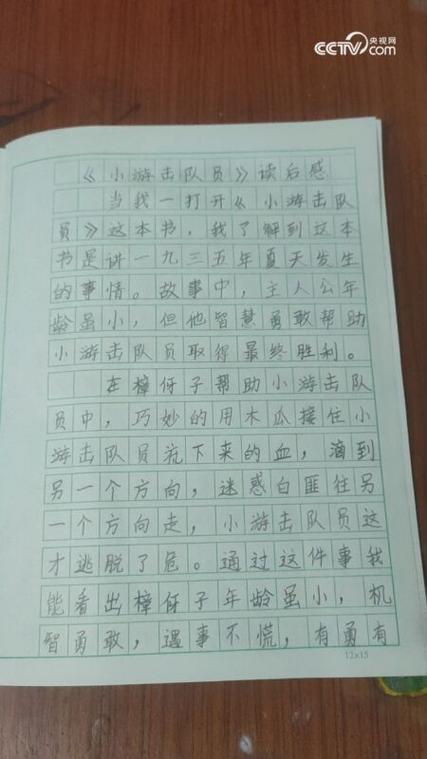 CCTV.com 央视网
《小游击队员》读后感
当我一打开《小游击队
员》这本书，我了解到这本
书是讲一九三五年夏天发生
的事情。故事中，主人公年
龄虽小，但他智慧勇敢帮助
小游击队员取得最终胜利。
在樟伢子帮助小游击队
员中，巧妙的用木瓜接住小
游击队员流下来的血，滴到
另一个方向，迷惑白匪往另
一个方向走，小游击队员这
才逃脱了危。通过这件事我
能看出樟伢子年龄虽小，机
智勇敢，遇事不慌，有勇有
12×15